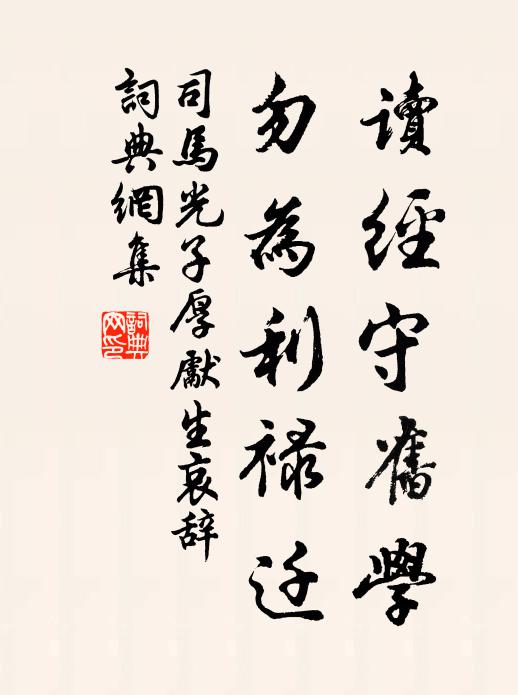 讀經守舊學
勿為利祿迁
司馬光子厚獻生哀辞
詞典網集
詞典
网印